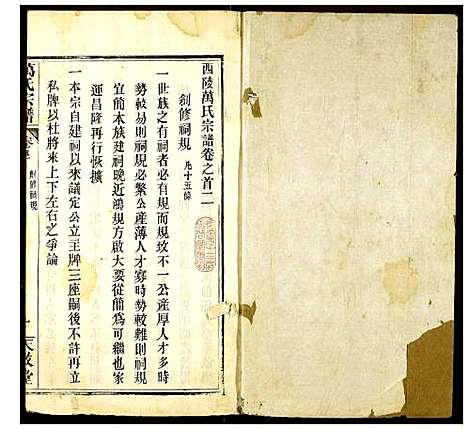 西陵萬氏宗譜卷之首二
創修祠規 凡十五條
一世族之有祠者必有規而規玫不一公產厚人才多時
勢較易則祠規必繁公產薄人才寡時勢較難則祠規
宜簡本族建祠晚近鴻規方啟大要從簡為可繼也家
運昌隆再行恢擴
一本宗自建祠以來議定公立主牌三座嗣後不許再立
私牌以杜將來上下左右之爭論
萬氏宗譜
創修祠規
一